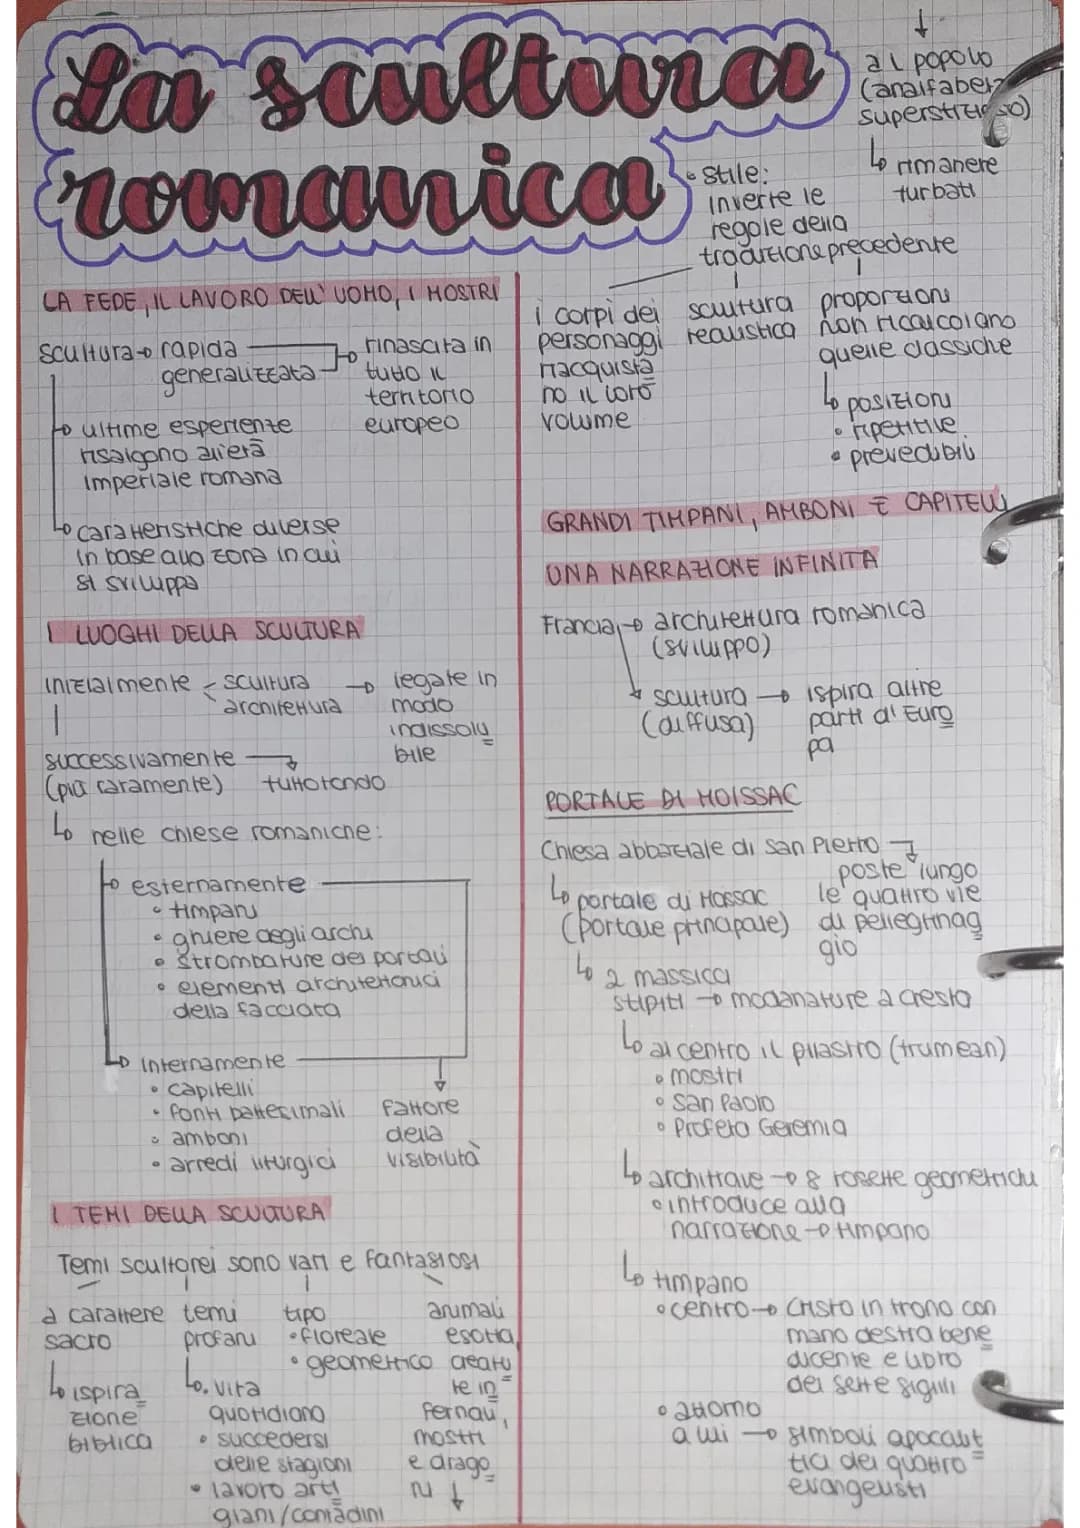 La scultura
romanica
LA FEDE, IL LAVORO DELL' UOMO, I MOSTRI
scultura → rapida
generalizzata
rinascita in
tutto il
territorio
europeo
ultime esperienze
risalgono all'età
imperiale romana
caratteristiche diverse
in base alla zona in cui
si sviluppa
I LUOGHI DELLA SCULTURA
inizialmente - scultura
architettura
→ legate in
modo
indissolu
bile
successivamente
(più raramente)
tuttotondo
nelle chiese romaniche:
esternamente
• timpani
• ghiere degli archi
• strombature dei portali
• elementi architettonici
della facciata
internamente
• capitelli
• fonti battesimali
• amboni
• arredi liturgici
fattore
della
visibilità
I TEMI DELLA SCULTURA
Temi scultorei sono vari e fantasiosi
a carattere
sacro
ispira
zione
biblica
temi
profani
• vita
quotidiana
• succedersi
delle stagioni
• lavoro arti
giani/contadini
tipo
• floreale
• geometrico
animali
esotici,
creatu
re in
fernali,
mostri
e drago
ni ↓
↓
al popolo
(analfabeta
superstizioso)
rimanere
turbati
• stile:
inverte le
regole della
tradizione precedente
i corpi dei
personaggi
riacquista
no il loro
volume
scultura
realistica
proporzioni
non ricalcolano
quelle classiche
posizioni
• ripetitive
• prevedibili
GRANDI TIMPANI, AMBONI E CAPITELLI
UNA NARRAZIONE INFINITA
Francia → architettura romanica
(sviluppo)
scultura → ispira altre
(diffusa) parti d' Euro
pa
PORTALE DI MOISSAC
Chiesa abbaziale di San Pietro
poste lungo
le quattro vie
di pellegrinag
gio
portale di Mossac
(portale principale)
2 massicci
stipiti → modanature a cresta
al centro il pilastro (trumean)
• mostri
• San Paolo
• Profeta Geremia
architrave → 8 rosette geometrichi
• introduce alla
narrazione → timpano
timpano
• centro → Cristo in trono con
mano destra bene
dicente e libro
dei sette sigilli
• attorno
a lui → simboli apocalit
tici dei quattro
evangelisti